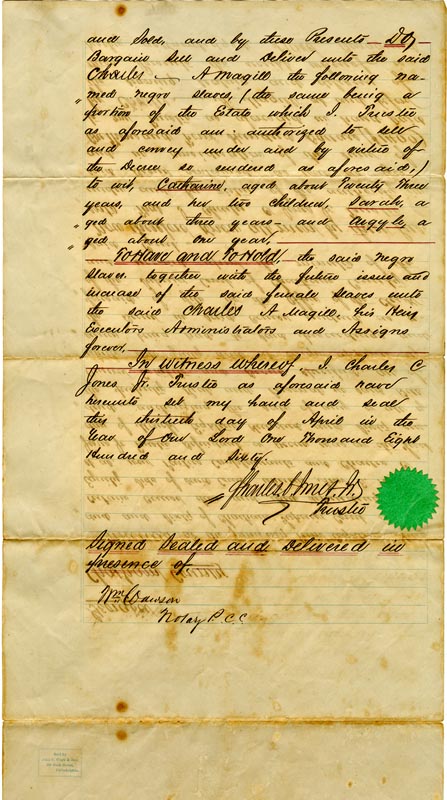 and Sold, and by these Presents Do,
Bargain Sell and Deliver unto the said
Charles A Magill the following na-
" med negro slaves, (the same being a
portion of the Estate which I. Trustee
as aforesaid am authorized to sell
and convey under and by virtue of
the Decree so rendered as aforesaid,)
to wit, Catharine, aged about Twenty three
years, and her two children, Sarah, a
" ged about three years - and Argyle, a
" ged about One year,
To Have and To Hold, the said negro
slaves together with the future issue and
increase of the said female slaves unto
the said Charles A Magill, his Heirs
Executors Administrators and Assigns
forever.
In Witness Whereof, I. Charles C
Jones Jr. Trustee as aforesaid have
hereunto set my hand and seal
this thirtieth day of April in the
Year of Our Lord One Thousand Eight
Hundred and Sixty.
Charles C Jones Jr.
Trustee
Signed Sealed and Delivered in
presence of
Wm C Dawson
Notay P C C